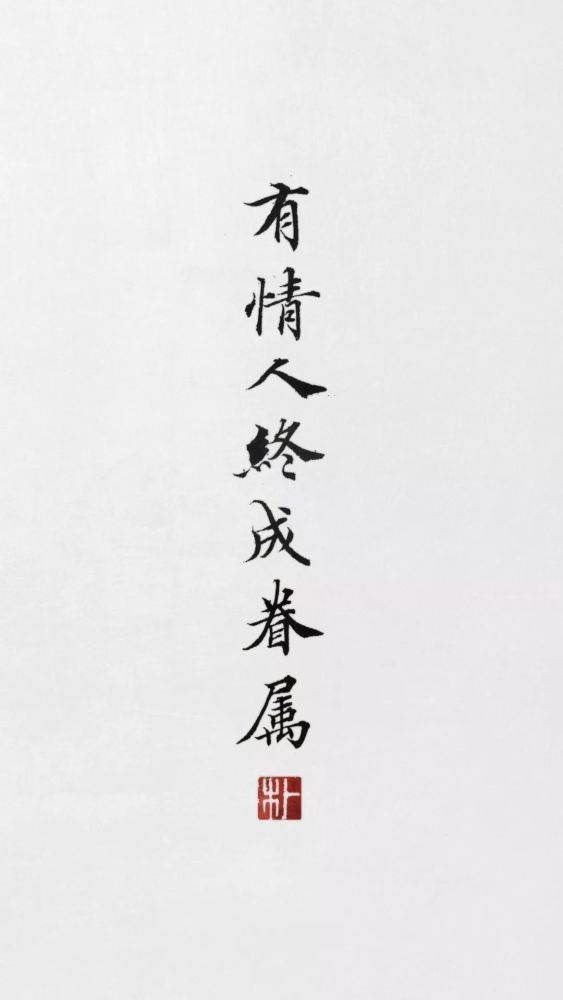 有情人終成眷属
朴